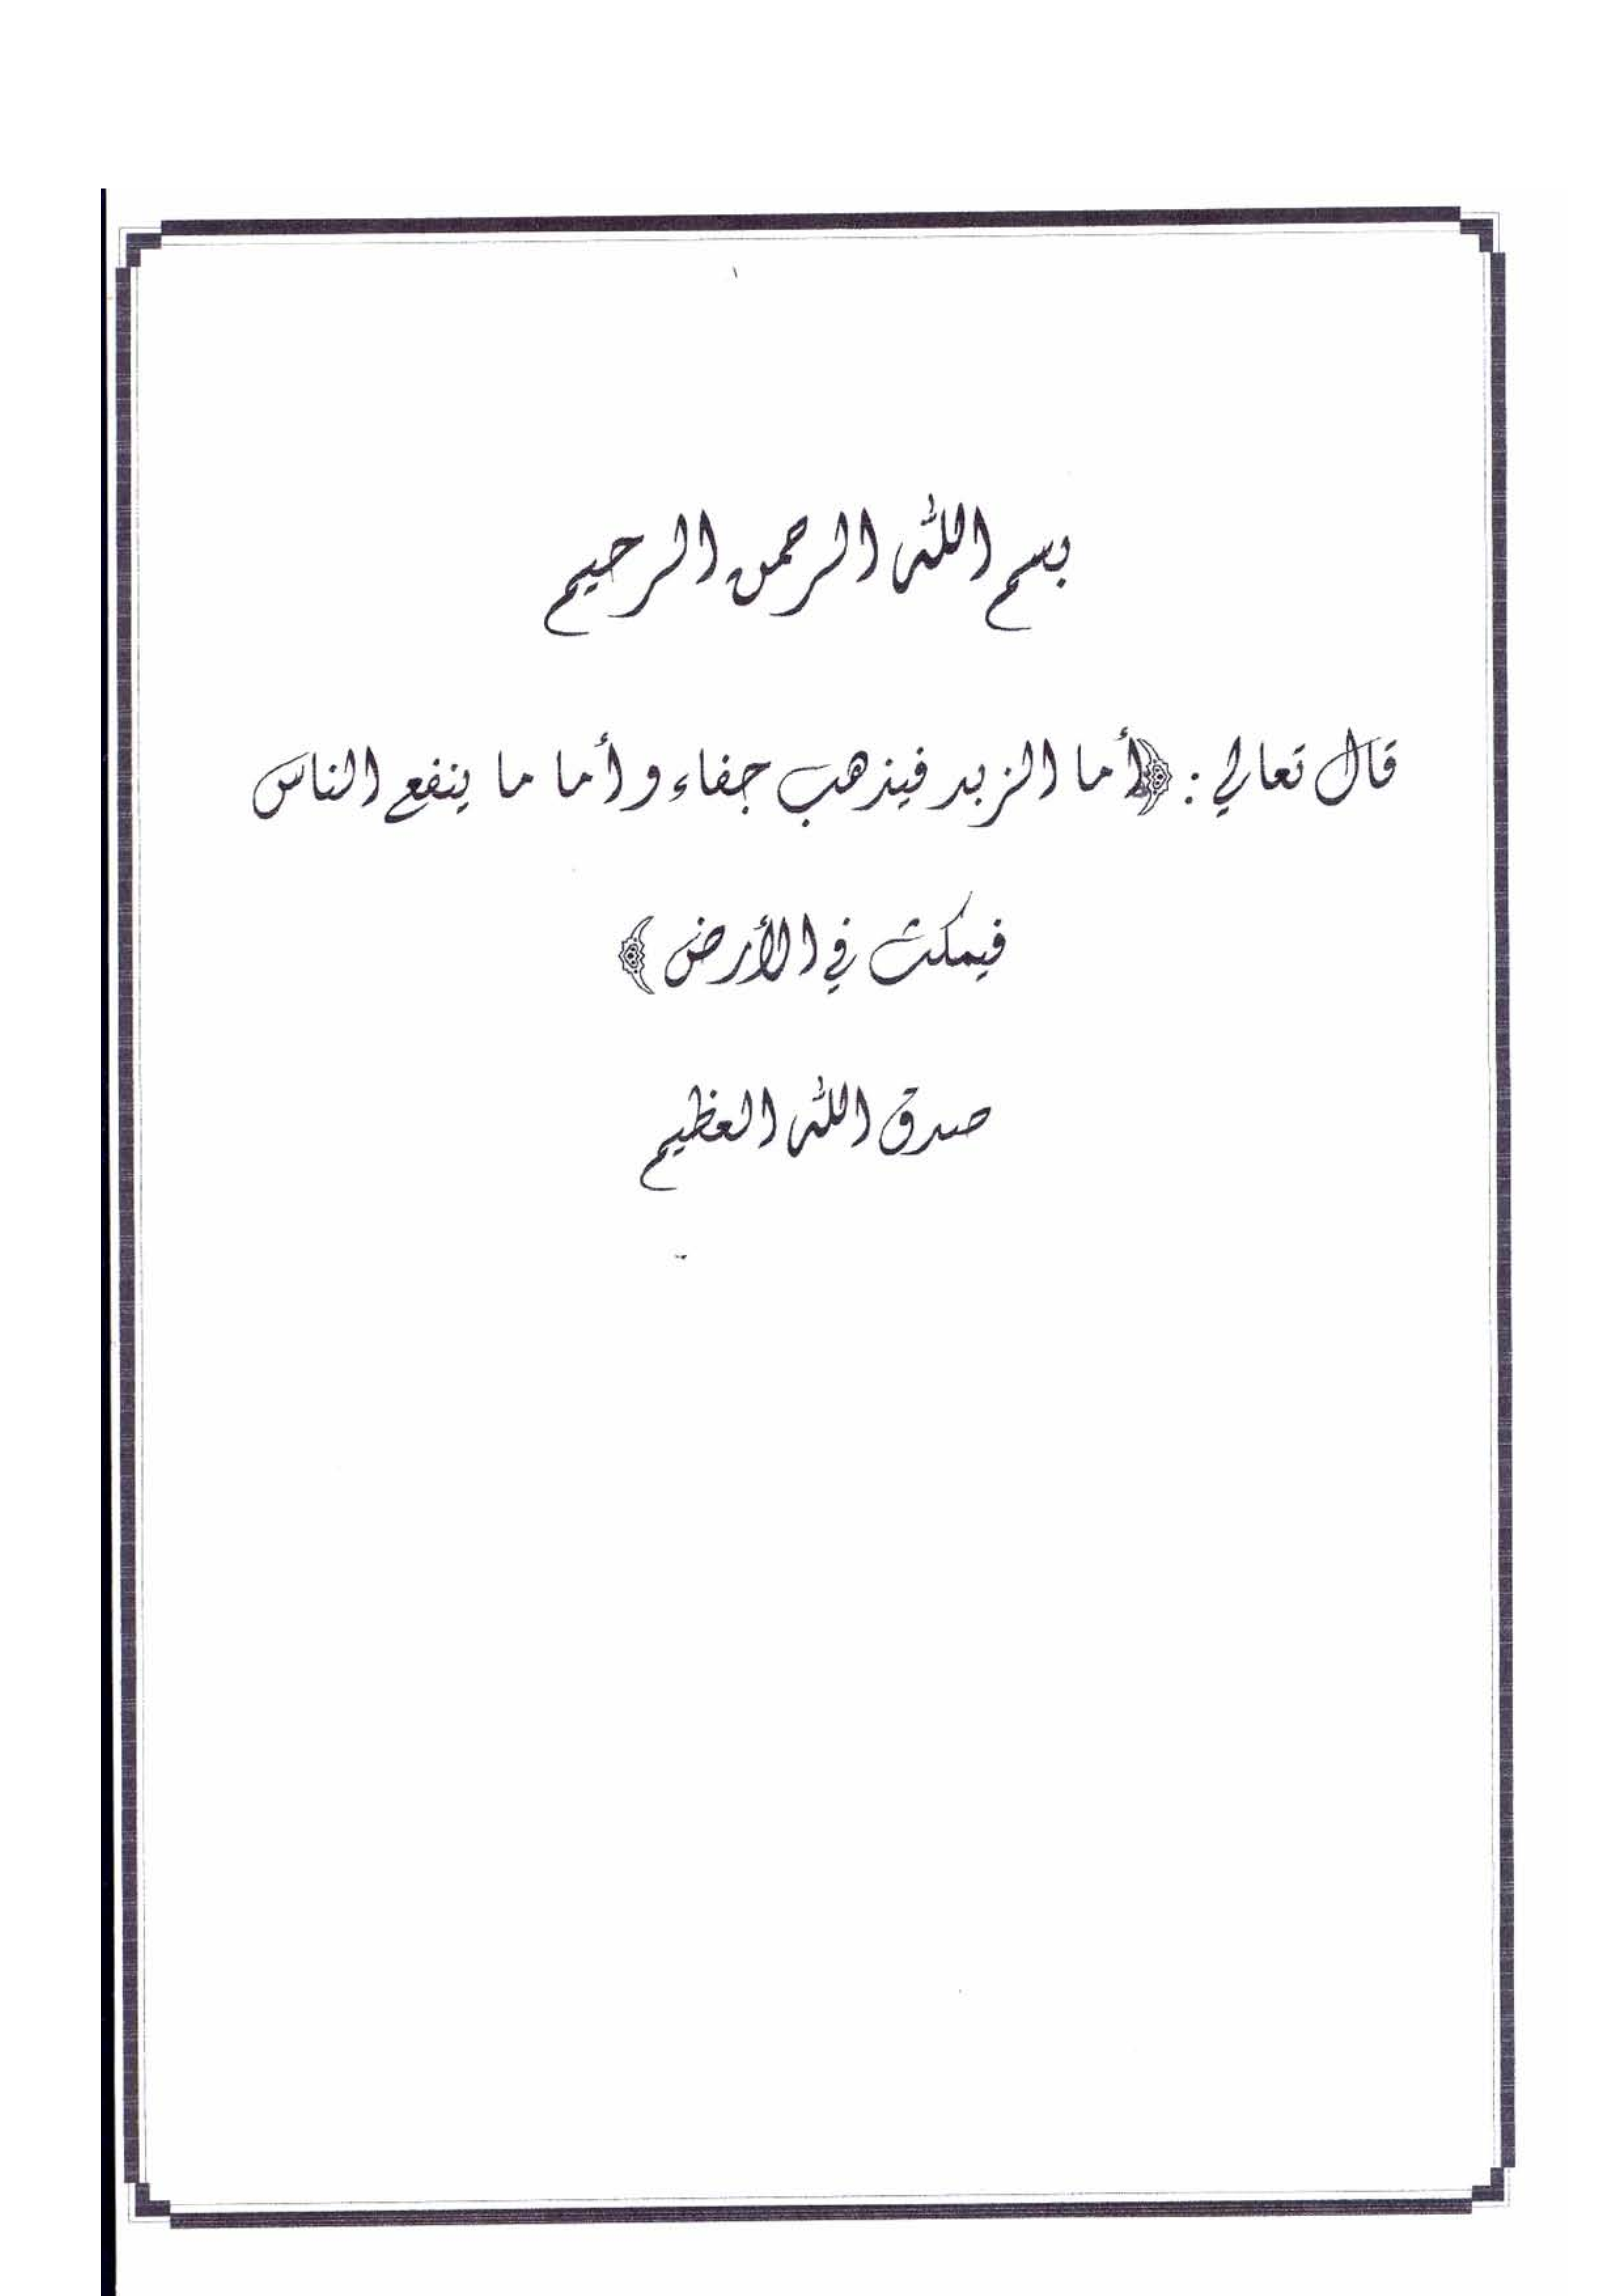 بسم الله الرحمن الرحيم
قال تعالى : ﴿أما الزبد فيذهب جفاء وأما ما ينفع الناس
فيمكث في الأرض ﴾
صدق الله العظيم